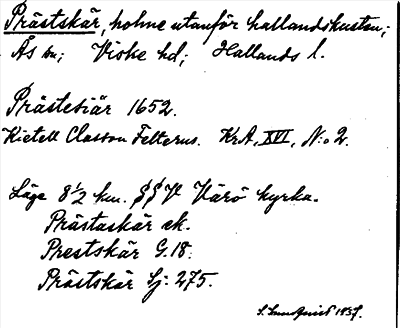 Prästskär, holme utanför hallandskusten;
Ås sn; Viske hd; Hallands l.
Prästesiär 1652.
Kietell Classon Felterus. KrA, XVI, N:o 2.
Läge 8 1/2 km. SSV Värö kyrka.
Prästaskär ek.
Prestskär G.18.
Prästskär Sj: 275.
1937.